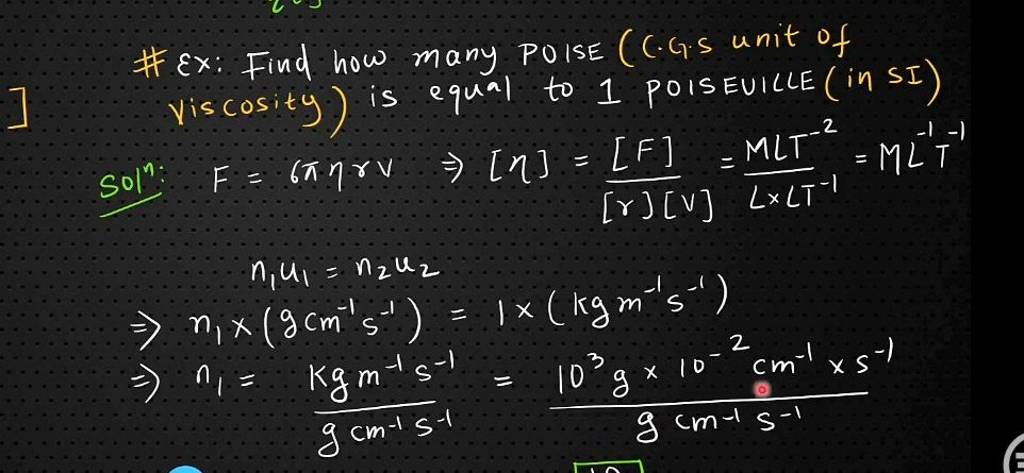 # Ex: Find how many POISE (C.G.S unit of
]
viscosity) is equal to 1 POISEUILLE (in SI)
Solⁿ: F = 6πηrv ⇒ [η] = [F] / [r][V] = MLT⁻² / L×LT⁻¹ = ML⁻¹T⁻¹
n₁u₁ = n₂u₂
⇒ n₁ × (g cm⁻¹ s⁻¹) = 1 × (kg m⁻¹ s⁻¹)
⇒ n₁ = kg m⁻¹ s⁻¹ / g cm⁻¹ s⁻¹ = 10³ g × 10⁻² cm⁻¹ × s⁻¹ / g cm⁻¹ s⁻¹